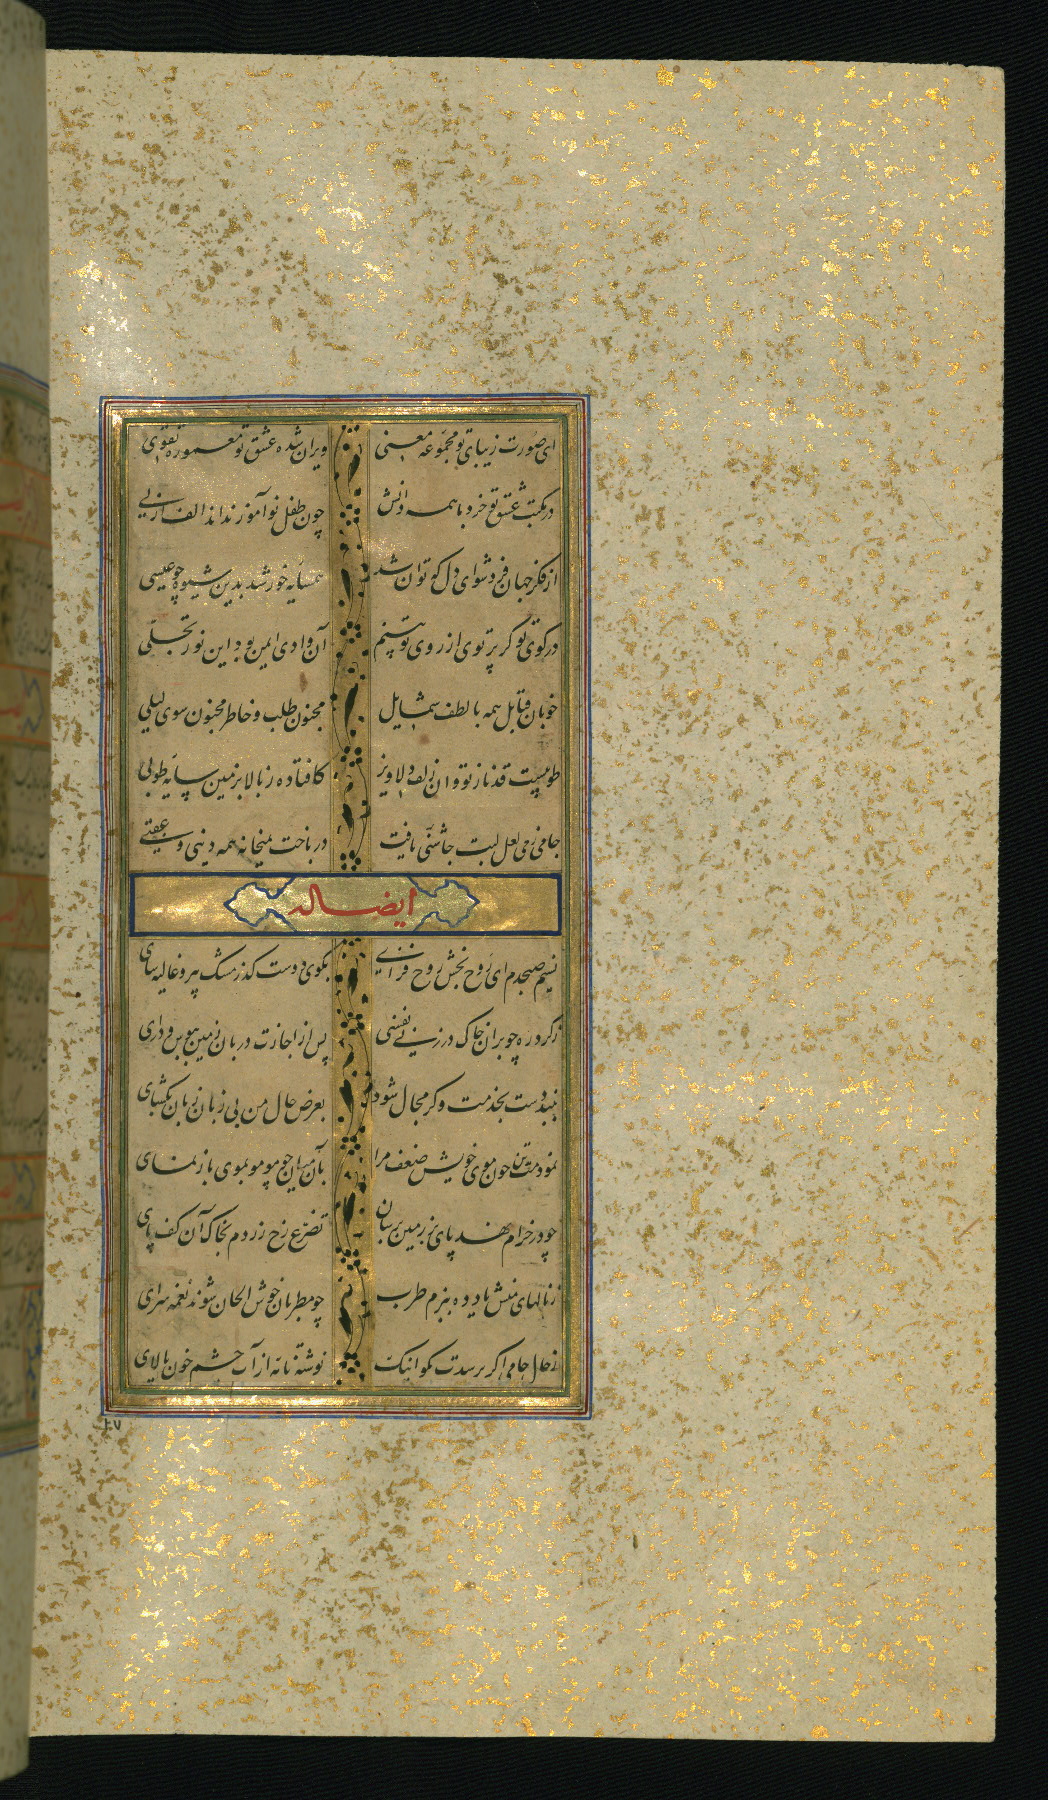 ای صورت زیبای تو مجموعه معنی ویران شده عشق تو معموره تقوی
در مکتب عشق تو خرد با همه دانش چون طفل نوآموز نداند الف از بی
از فکر جهان فرد شو ای دل که توان شد همسایه خورشید بدین شیوه چو عیسی
در کوی تو گر پرتوی از روی تو بینم آن وادی ایمن بود این نور تجلی
خوبان قبایل همه با لطف شمایل مجنون طلب و خاطر مجنون سوی لیلی
طوبیست قد ناز تو وان زلف دلاویز کافتاده ز بالا بزمین سایه طوبی
جامی ز می لعل لبت چاشنی یافت در باخت میخانه همه دینی و عقبی
ایضا له
نسیم صبحدم ای روح بخش روح فزای بکوی دوست گذر مشک بیز و غالیه سای
ز گرد ره چو بران خاک در زنی نفسی پس از اجازت دربان زمین ببوس و درای
ببند دست بخدمت وگر مجال شود بعرض حال من بی زبان زبان بگشای
نمود تن چون موی خویش ضعف مرا بآن میان چو مو مو بموی باز نمای
چو در خرام نهد پای بر زمین بر سان تضرع رخ زردم بخاک آن کف پای
ز نالهای منش یاد ده ببزم طرب چو مطربان خوش الحان شوند نغمه سرای
ز حال جامی اگر پرسدت بگو اینک نوشته نامه از آب چشم خون پالای